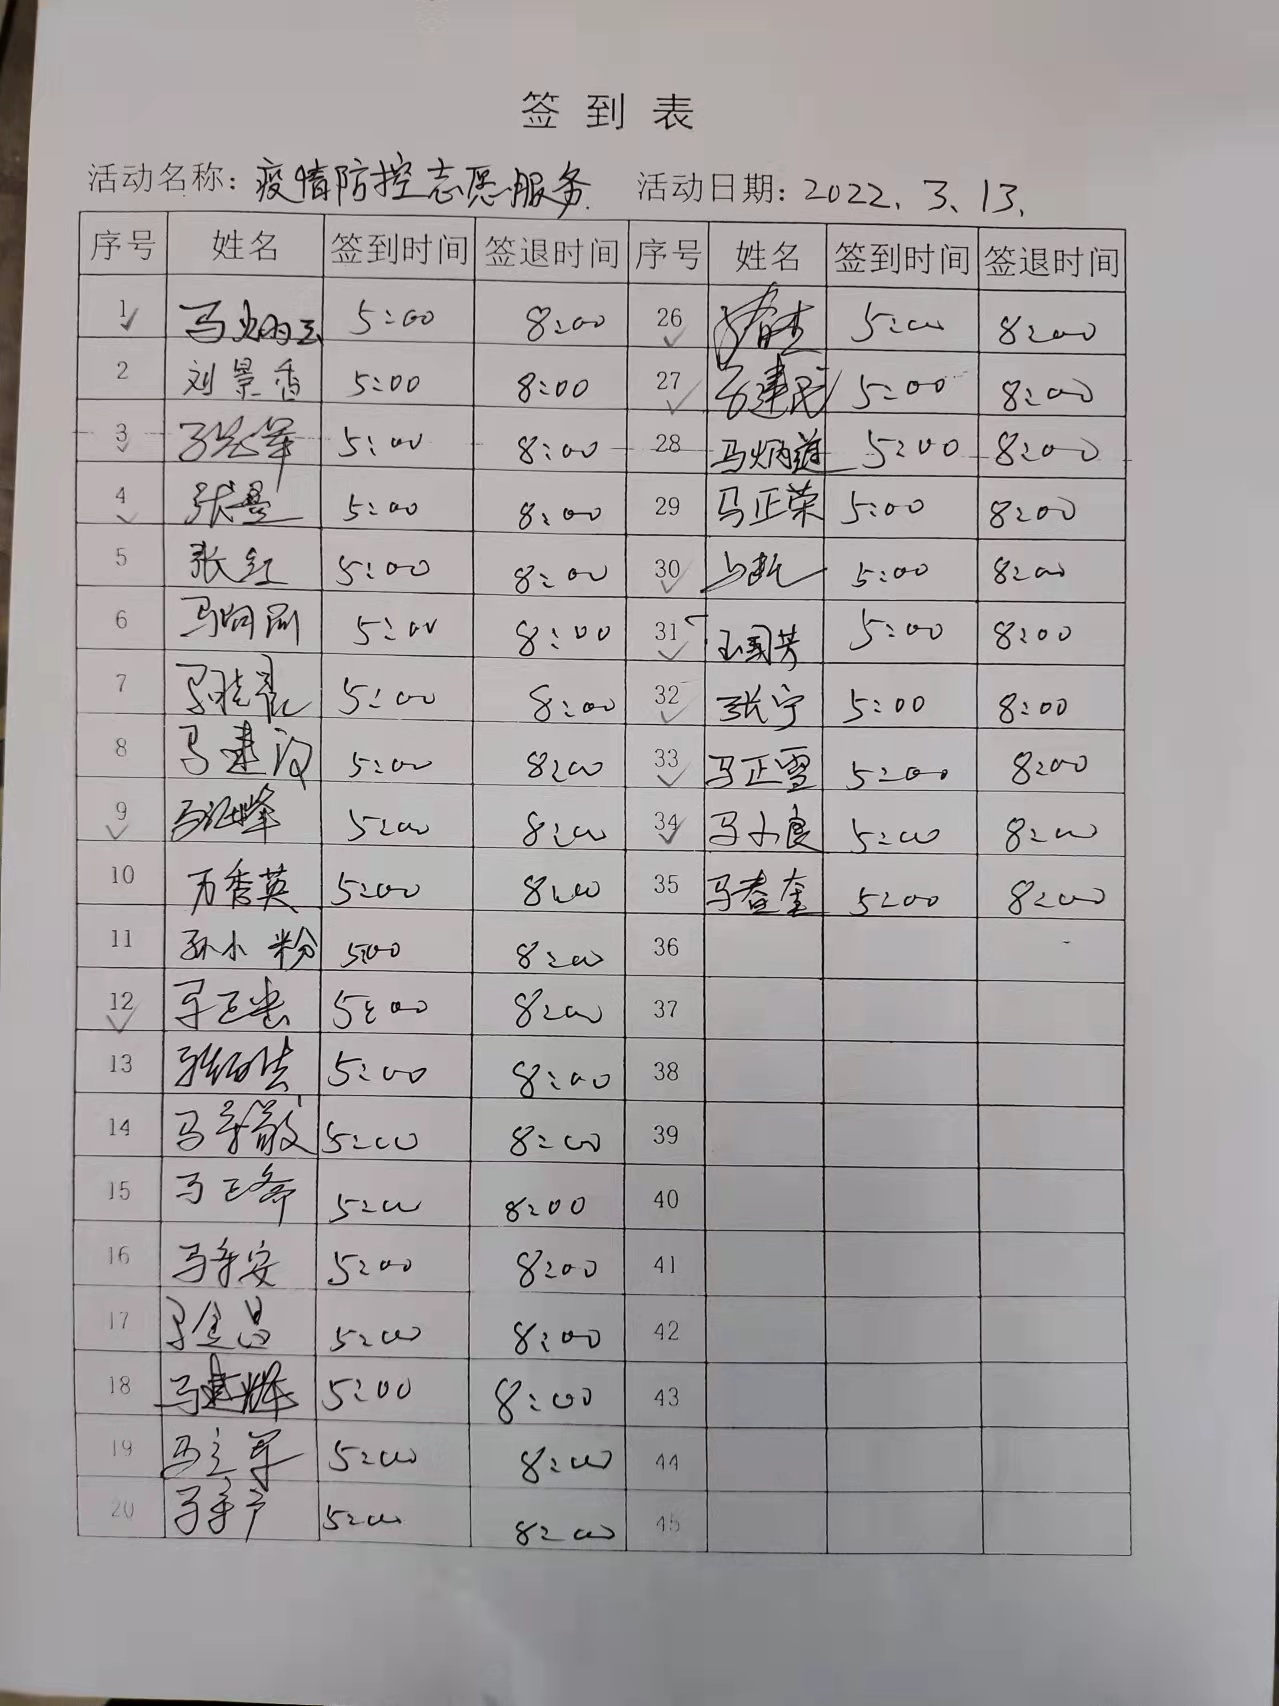 签到表
活动名称：疫情防控志愿服务 活动日期：2022.3.13.
序号 姓名 签到时间 签退时间 序号 姓名 签到时间 签退时间
1 马炳玉 5:00 8:00 26 5:00 8:00
2 刘景香 5:00 8:00 27 马建民 5:00 8:00
3 5:00 8:00 28 马炳道 5:00 8:00
4 张昱 5:00 8:00 29 马正荣 5:00 8:00
5 张红 5:00 8:00 30 5:00 8:00
6 马向前 5:00 8:00 31 王国芳 5:00 8:00
7 5:00 8:00 32 张宁 5:00 8:00
8 马建设 5:00 8:00 33 马正雪 5:00 8:00
9 5:00 8:00 34 马小良 5:00 8:00
10 万香英 5:00 8:00 35 马春奎 5:00 8:00
11 孙小粉 5:00 8:00 36
12 5:00 8:00 37
13 5:00 8:00 38
14 马守敬 5:00 8:00 39
15 马正奇 5:00 8:00 40
16 马守安 5:00 8:00 41
17 马金昌 5:00 8:00 42
18 马建辉 5:00 8:00 43
19 马立军 5:00 8:00 44
20 马守户 5:00 8:00 45